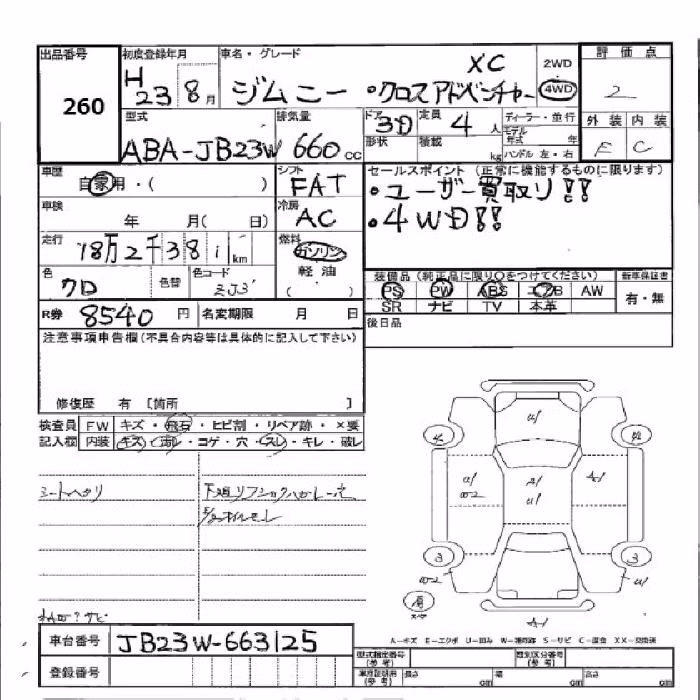 出品番号 260
初度登録年月 H 23 8月
車名・グレード ジムニー ・クロスアドベンチャー XC
2WD 4WD
評価点 2
外装 内装
E C
型式 ABA-JB23W
排気量 660cc
ドア 3D
定員 4人
形状 積載 kg
ディーラー・並行
モデル年式 年
ハンドル 左・右
車歴 自家用・( )
シフト FAT
セールスポイント (正常に機能するものに限ります)
・ユーザー買取り!!
・4WD!!
車検 年 月( 日)
冷房 AC
走行 18万2千381km
燃料 ガソリン
軽油
( )
色 クロ 色替 色コード ZJ3
装備品 (純正品に限り〇をつけてください) 新車保証書
PS PW ABS エアB AW 有・無
SR ナビ TV 本革
R券 8540円 名変期限 月 日
後日品
注意事項申告欄(不具合内容等は具体的に記入して下さい)
修復歴 有 [箇所 ]
検査員 FW キズ・飛石・ヒビ割・リペア跡・×要
記入欄 内装 キズ・汚レ・コゲ・穴・スレ・キレ・破レ
シートヘタリ
サビ
車台番号 JB23W-663125
登録番号
U1
U1
W2
A1
U1
3
3
W2
U1
A1
A-キズ E-エクボ U-凹み W-補修跡 S-サビ C-腐食 XX-交換済
型式指定番号 (参考) 類別区分番号 (参考)
車庫証明用 (参考) 長さ cm 幅 cm 高さ cm